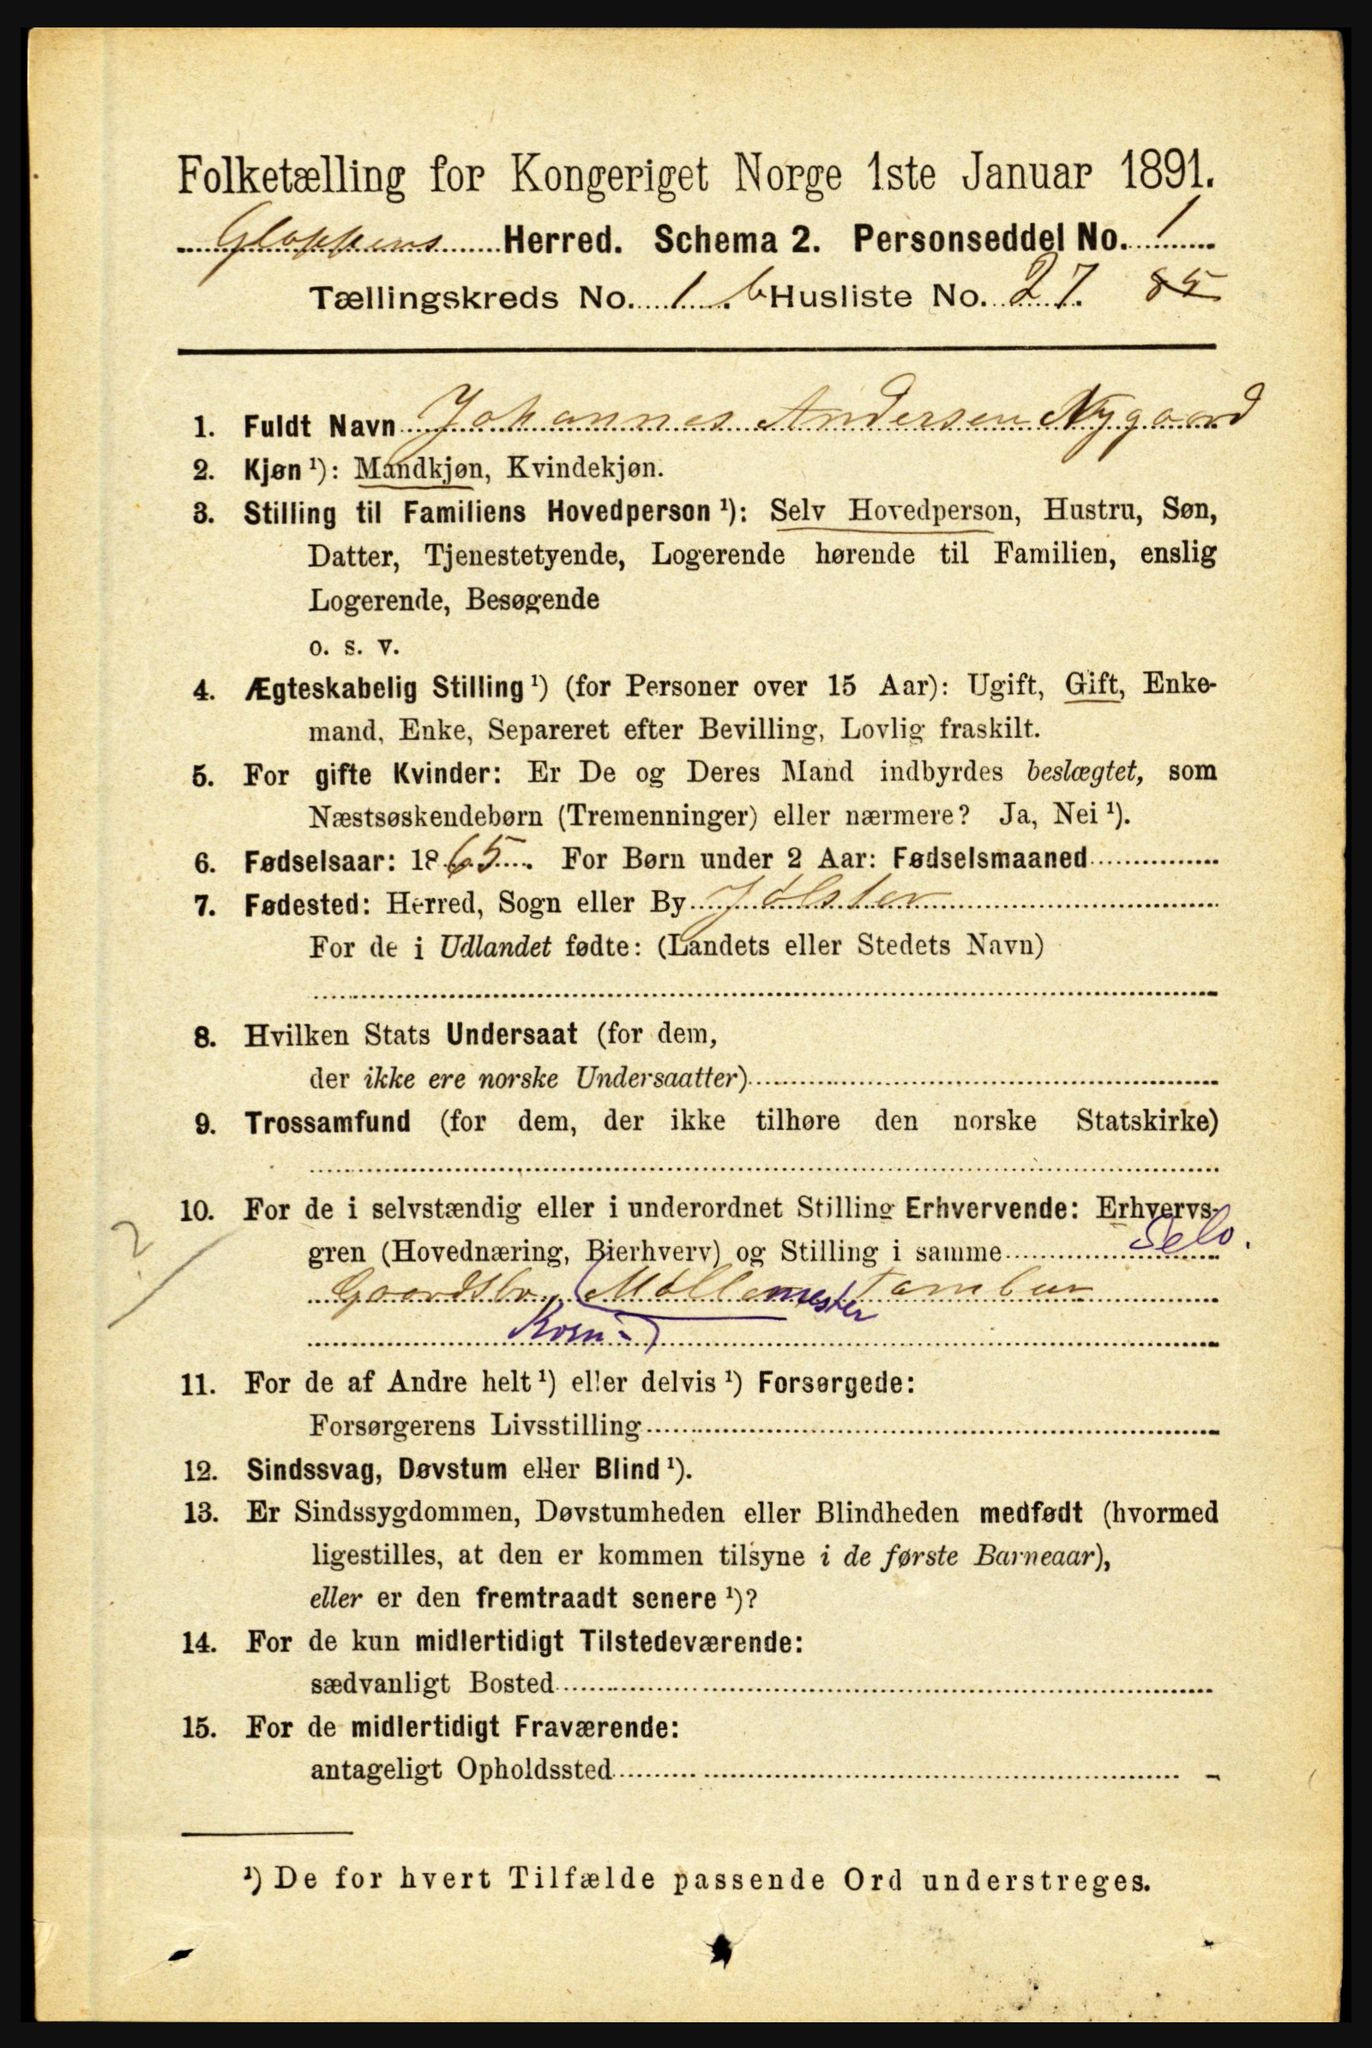 Folketælling for Kongeriget Norge 1ste Januar 1891.
Gloppens Herred. Schema 2. Personseddel No. 1
Tællingskreds No. 1. b Husliste No. 27. 85
1. Fuldt Navn Johannes Andersen Nygaard
2. Kjøn ¹): Mandkjøn, Kvindekjøn.
3. Stilling til Familiens Hovedperson ¹): Selv Hovedperson, Hustru, Søn,
Datter, Tjenestetyende, Logerende hørende til Familien, enslig
Logerende, Besøgende
o. s. v.
4. Ægteskabelig Stilling ¹) (for Personer over 15 Aar): Ugift, Gift, Enke-
mand, Enke, Separeret efter Bevilling, Lovlig fraskilt.
5. For gifte Kvinder: Er De og Deres Mand indbyrdes beslægtet, som
Næstsøskendebørn (Tremenninger) eller nærmere? Ja, Nei ¹).
6. Fødselsaar: 1865. For Børn under 2 Aar: Fødselsmaaned
7. Fødested: Herred, Sogn eller By Jølster
For de i Udlandet fødte: (Landets eller Stedets Navn)
8. Hvilken Stats Undersaat (for dem,
der ikke ere norske Undersaatter)
9. Trossamfund (for dem, der ikke tilhøre den norske Statskirke)
10. For de i selvstændig eller i underordnet Stilling Erhvervende: Erhvervs-
gren (Hovednæring, Bierhverv) og Stilling i samme Selv.
2
Gaardsbr, Møllemester Tambur
Korn-
11. For de af Andre helt ¹) eller delvis ¹) Forsørgede:
Forsørgerens Livsstilling
12. Sindssvag, Døvstum eller Blind ¹).
13. Er Sindssygdommen, Døvstumheden eller Blindheden medfødt (hvormed
ligestilles, at den er kommen tilsyne i de første Barneaar),
eller er den fremtraadt senere ¹)?
14. For de kun midlertidigt Tilstedeværende:
sædvanligt Bosted
15. For de midlertidigt Fraværende:
antageligt Opholdssted
¹) De for hvert Tilfælde passende Ord understreges.